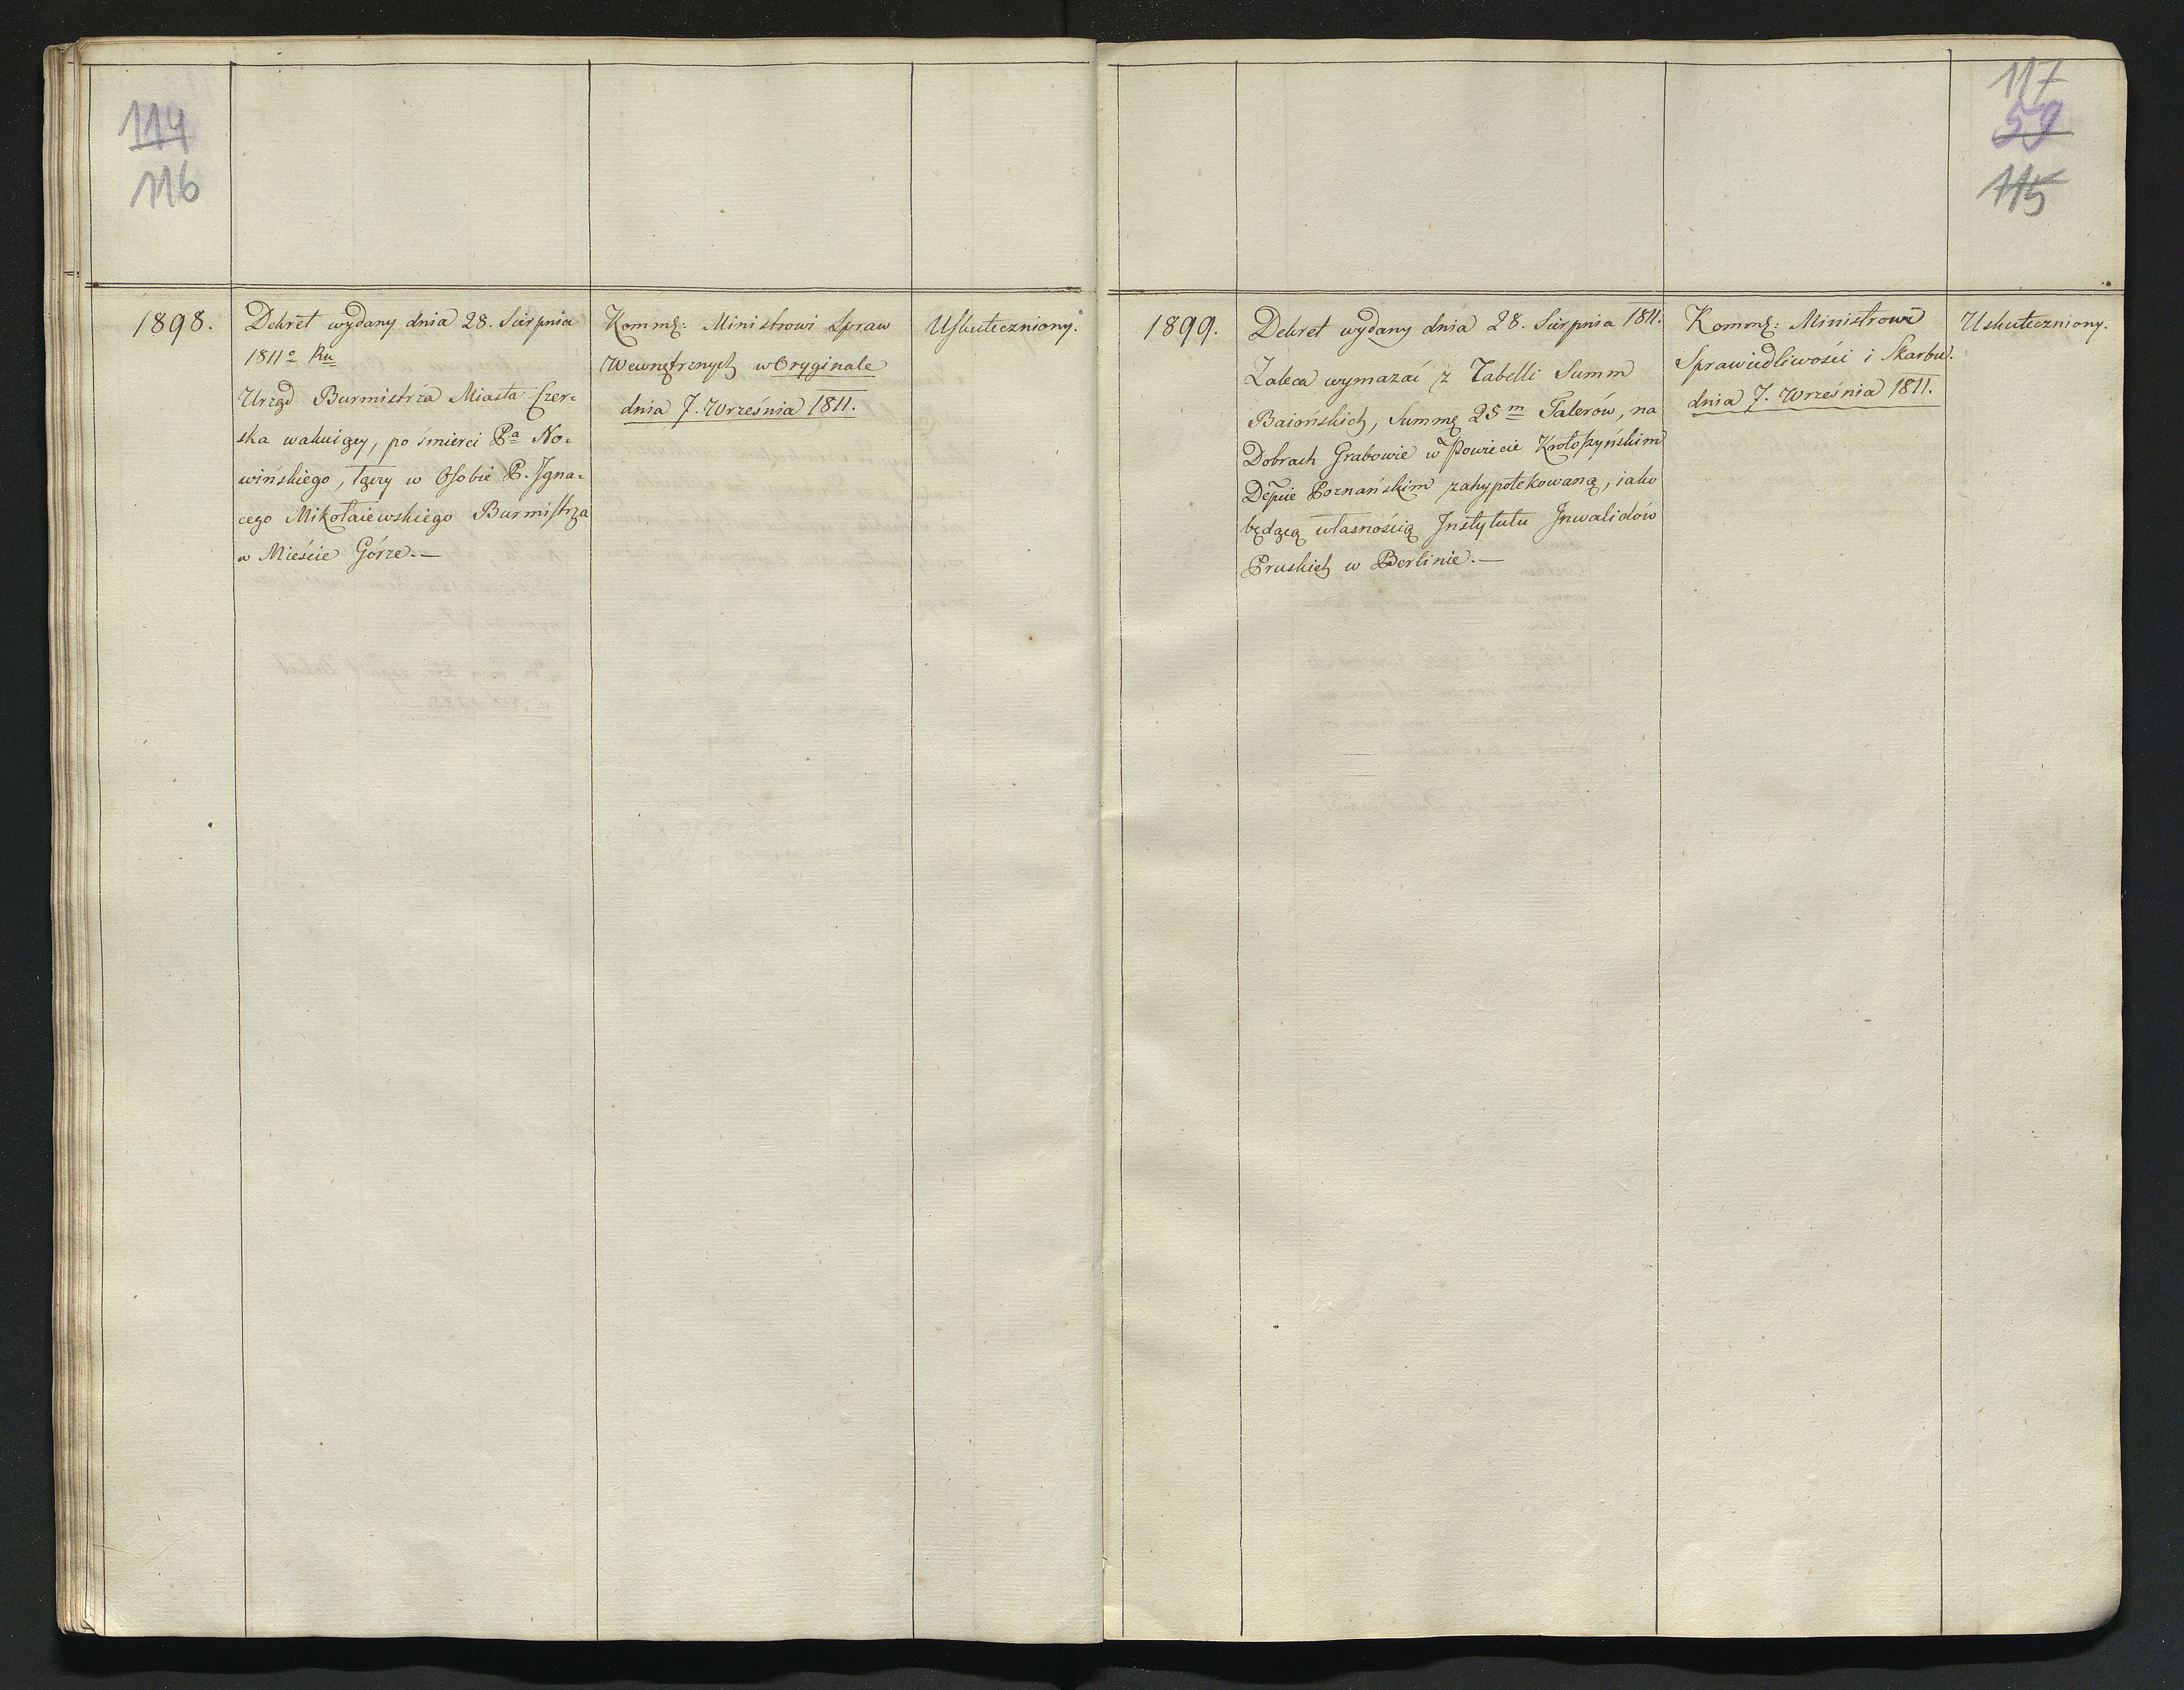 114
116
1898.
Dekret wydany dnia 28. Sierpnia
1811º Ru
Urząd Burmistrza Miasta Czer-
ska wakuiący, po śmierci Pª No-
wińskiego, łączy w Osobie P. Igna-
cego Mikołaiewskiego Burmistrza
w Mieście Górze.—
Kommg: Ministrowi Spraw
Wewnętrznych w Oryginale
dnia 7. Września 1811.
Uskuteczniony.
117
59
115
1899.
Dekret wydany dnia 28. Sierpnia 1811.
Zaleca wymazać z Tabelli Summ
Baiońskich, Summę 25m Talerów, na
Dobrach Grabowie w Powiecie Krotoszyńskim
Depcie Poznańskim zahypotekowaną, iako
będącą własnością Instytutu Inwalidów
Pruskich w Berlinie.—
Kommg: Ministrowi
Sprawiedliwości i Skarbu.
dnia 7. Września 1811.
Uskuteczniony.